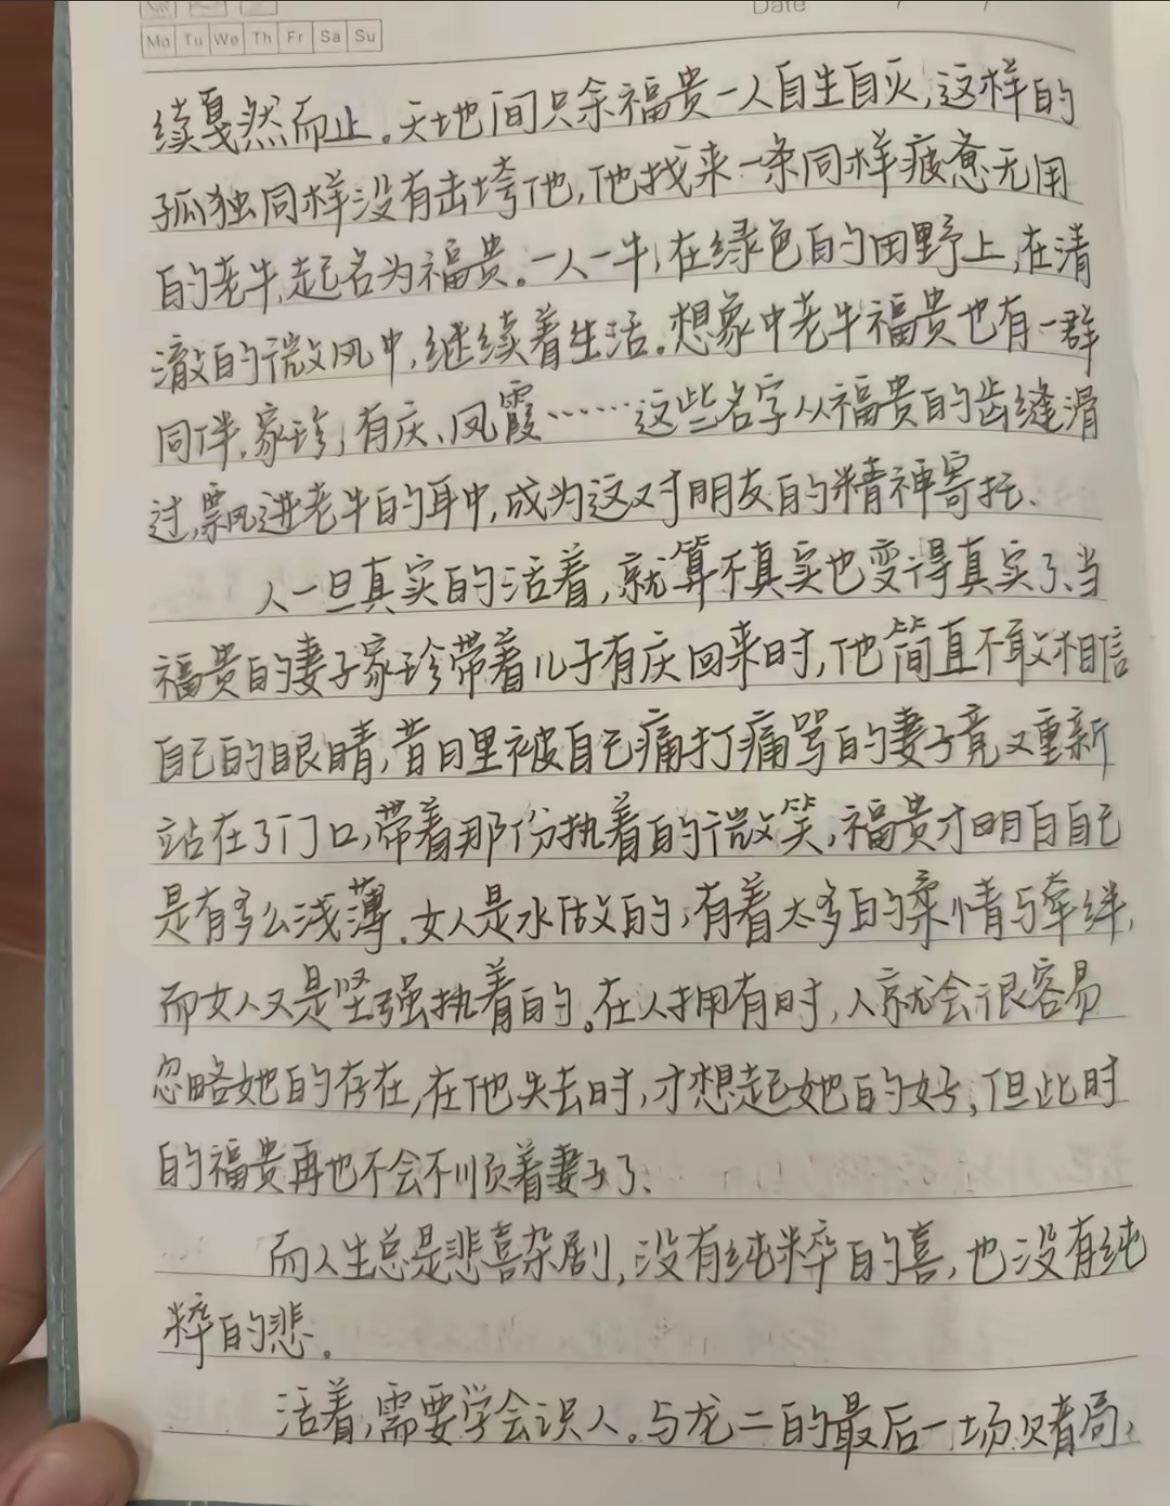 Date / /
Mo Tu We Th Fr Sa Su
续戛然而止。天地间只余福贵一人自生自灭,这样的
孤独同样没有击垮他,他找来一条同样疲惫无用
的老牛,起名为福贵。一人一牛,在绿色的田野上,在清
澈的微风中,继续着生活。想象中老牛福贵也有一群
同伴,家珍,有庆、凤霞……这些名字从福贵的齿缝滑
过,飘进老牛的耳中,成为这对朋友的精神寄托、
人一旦真实的活着,就算不真实也变得真实了、当
福贵的妻子家珍带着儿子有庆回来时,他简直不敢相信
自己的眼睛,昔日里被自己痛打痛骂的妻子竟又重新
站在了门口,带着那份执着的微笑,福贵才明白自己
是有多么浅薄.女人是水做的,有着太多的柔情与牵绊,
而女人又是坚强执着的。在人拥有时,人就会很容易
忽略她的存在,在他失去时,才想起她的好,但此时
的福贵再也不会不顺着妻子了、
而人生总是悲喜杂剧,没有纯粹的喜,也没有纯
粹的悲。
活着,需要学会识人。与龙二的最后一场赌局,